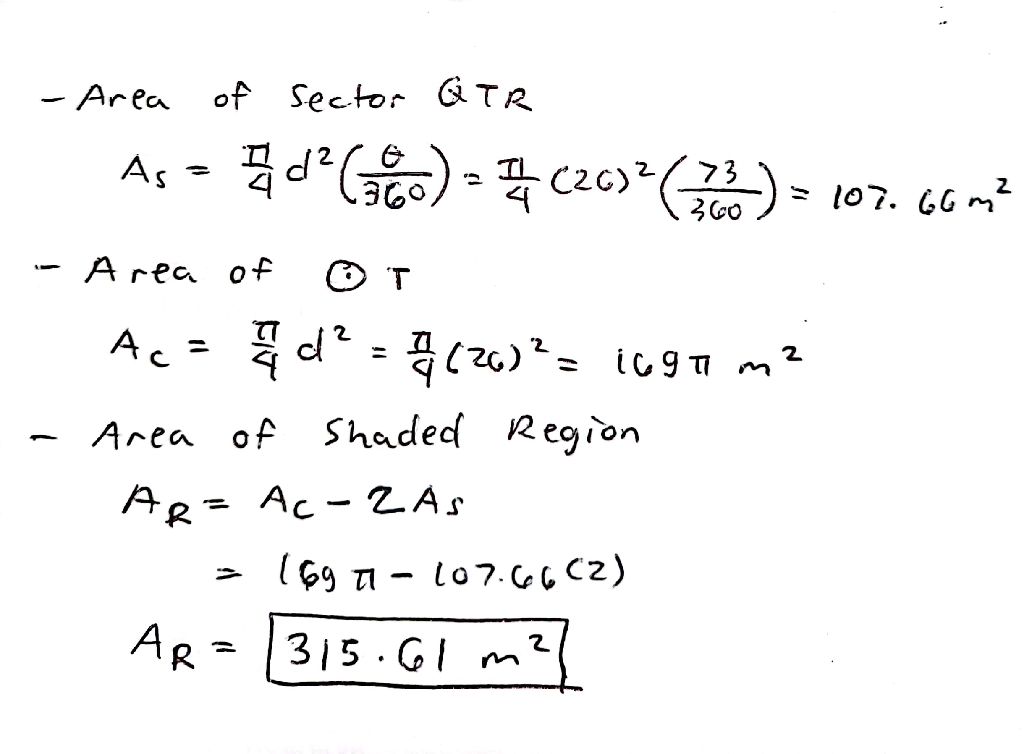 - Area of Sector QTR
As = π/4 d²(θ/360) = π/4 (26)² (73/360) = 107.66 m²
- Area of ⊙ T
Ac = π/4 d² = π/4 (26)² = 169π m²
- Area of Shaded Region
AR = Ac - 2As
= 169π - 107.66(2)
AR = 315.61 m²